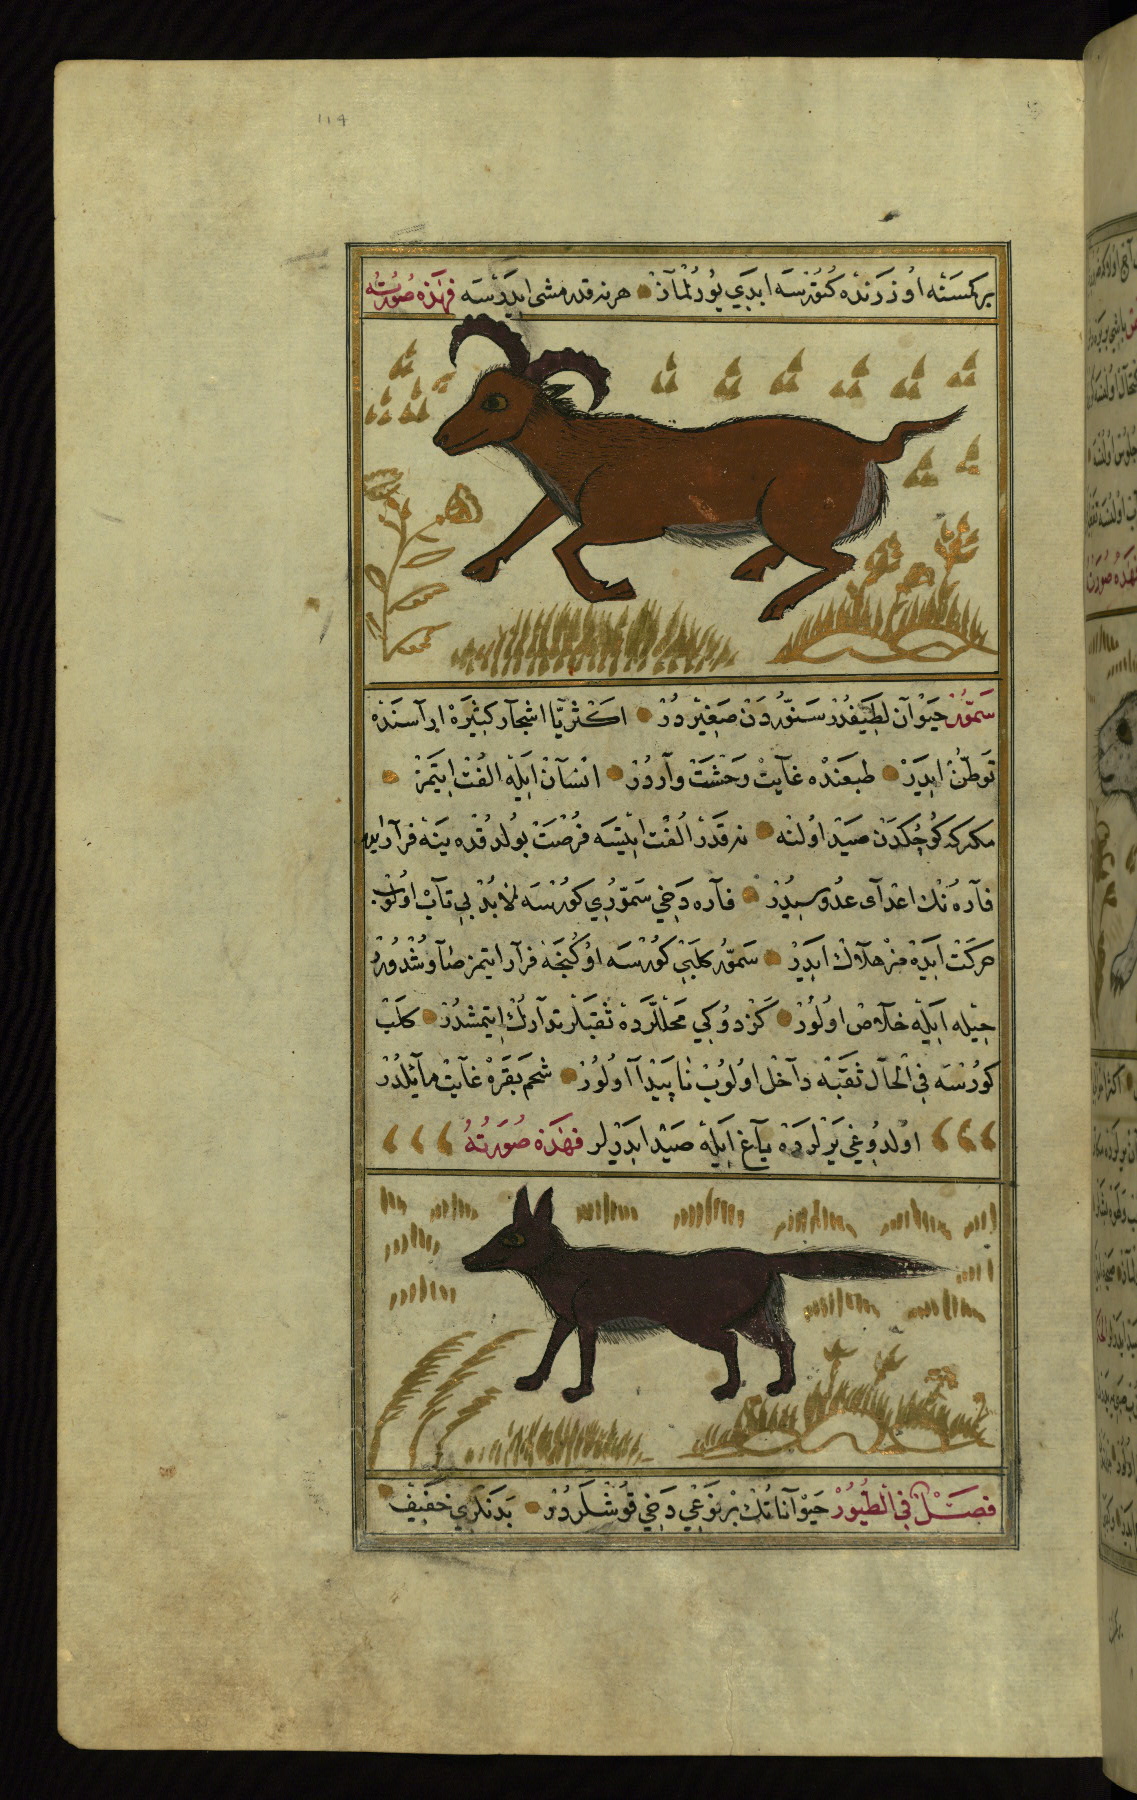 114
بر كمسنه اوزرنده كتورسه ابدي يورلماز هر نه قدر مشي ايدرسه فهذه صورته
سمّور حيوان لطيفدر سنّوردن صغيردر اكثريّا اشجار كثيره اراسنده
توطّن ايدر طبعنده غايت وحشت واردر انسان ايله الفت ايتمز
مكركه كوچكدن صيد اولنه نه قدر الفت ايتسه فرصت بولدقده ينه فرار ايدر
فاره نك اعداى عدوسيدر فاره دخي سمّوري كورسه لابد بي تاب اولوب
حركت ايده مز هلاك ايدر سمّور كلبي كورسه اوكنجه فرار ايتمز
حيله ايله خلاص اولور كزدوكي محللرده ثقبلر تدارك ايتمشدر كلب
كورسه في الحال ثقبه داخل اولوب ناپيدا اولور شحم بقره غايت مائلدر
اولدوغي يرلرده ياغ ايله صيد ايدرلر فهذه صورته
فصل في الطيور حيواناتك بر نوعي دخي قوشلردر بدنلري خفيف